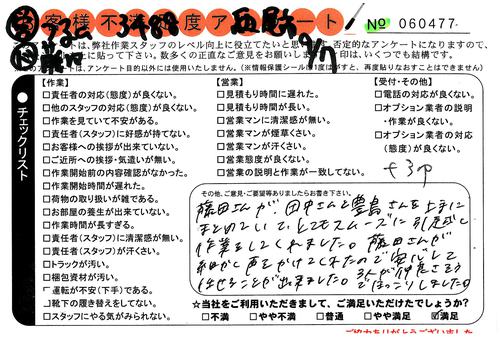 お客様不満足度アンケート
No 060477
トは、弊社作業スタッフのレベル向上に役立てたいと思います。否定的なアンケートになりますので、
上に貼って下さい。数多くの正直なご意見をお願いします。✓印は、いくつでも結構です。
のアンケートは、アンケート目的以外には使用いたしません。(※情報保護シール
チェックリスト
【作業】
□責任者の対応(態度)が良くない。
□他のスタッフの対応(態度)が良くない。
□作業を見ていて不安がある。
□責任者(スタッフ)に好感が持てない。
□お客様への挨拶が出来ていない。
□ご近所への挨拶・気遣いが無い。
□作業開始前の内容確認がなかった。
□作業開始時間が遅れた。
□荷物の取り扱いが雑である。
□お部屋の養生が出来ていない。
□作業時間が長すぎる。
□責任者(スタッフ)に清潔感が無い。
□責任者(スタッフ)が汗くさい。
□トラックが汚い。
□梱包資材が汚い。
□運転が不安(下手)である。
□靴下の履き替えをしてない。
□スタッフにやる気がみられない。
【営業】
□見積もり時間に遅れた。
□見積もり時間が長い。
□営業マンに清潔感が無い。
□営業マンが煙草くさい。
□営業マンが汗くさい。
□営業態度が良くない。
□営業の説明と作業が一致してない。
【受付・その他】
□電話の対応が良くない。
□オプション業者の説明
・作業が良くない。
□オプション業者の対応
(態度)が良くない。
その他、ご意見・ご要望等ありましたらお書き下さい。
藤田さんが、田中さんと豊島さんを上手に
まとめていて、とてもスムーズに引越し
作業をしてくれました。藤田さんが
細かく声をかけてくれたので安心して
任せることが出来ました。3人が仲良さそう
でほっこりしました。
☆当社をご利用いただきまして、ご満足いただけたでしょうか?
□不満 □やや不満 □普通 □やや満足 ☑満足
ご協力ありがとうございました